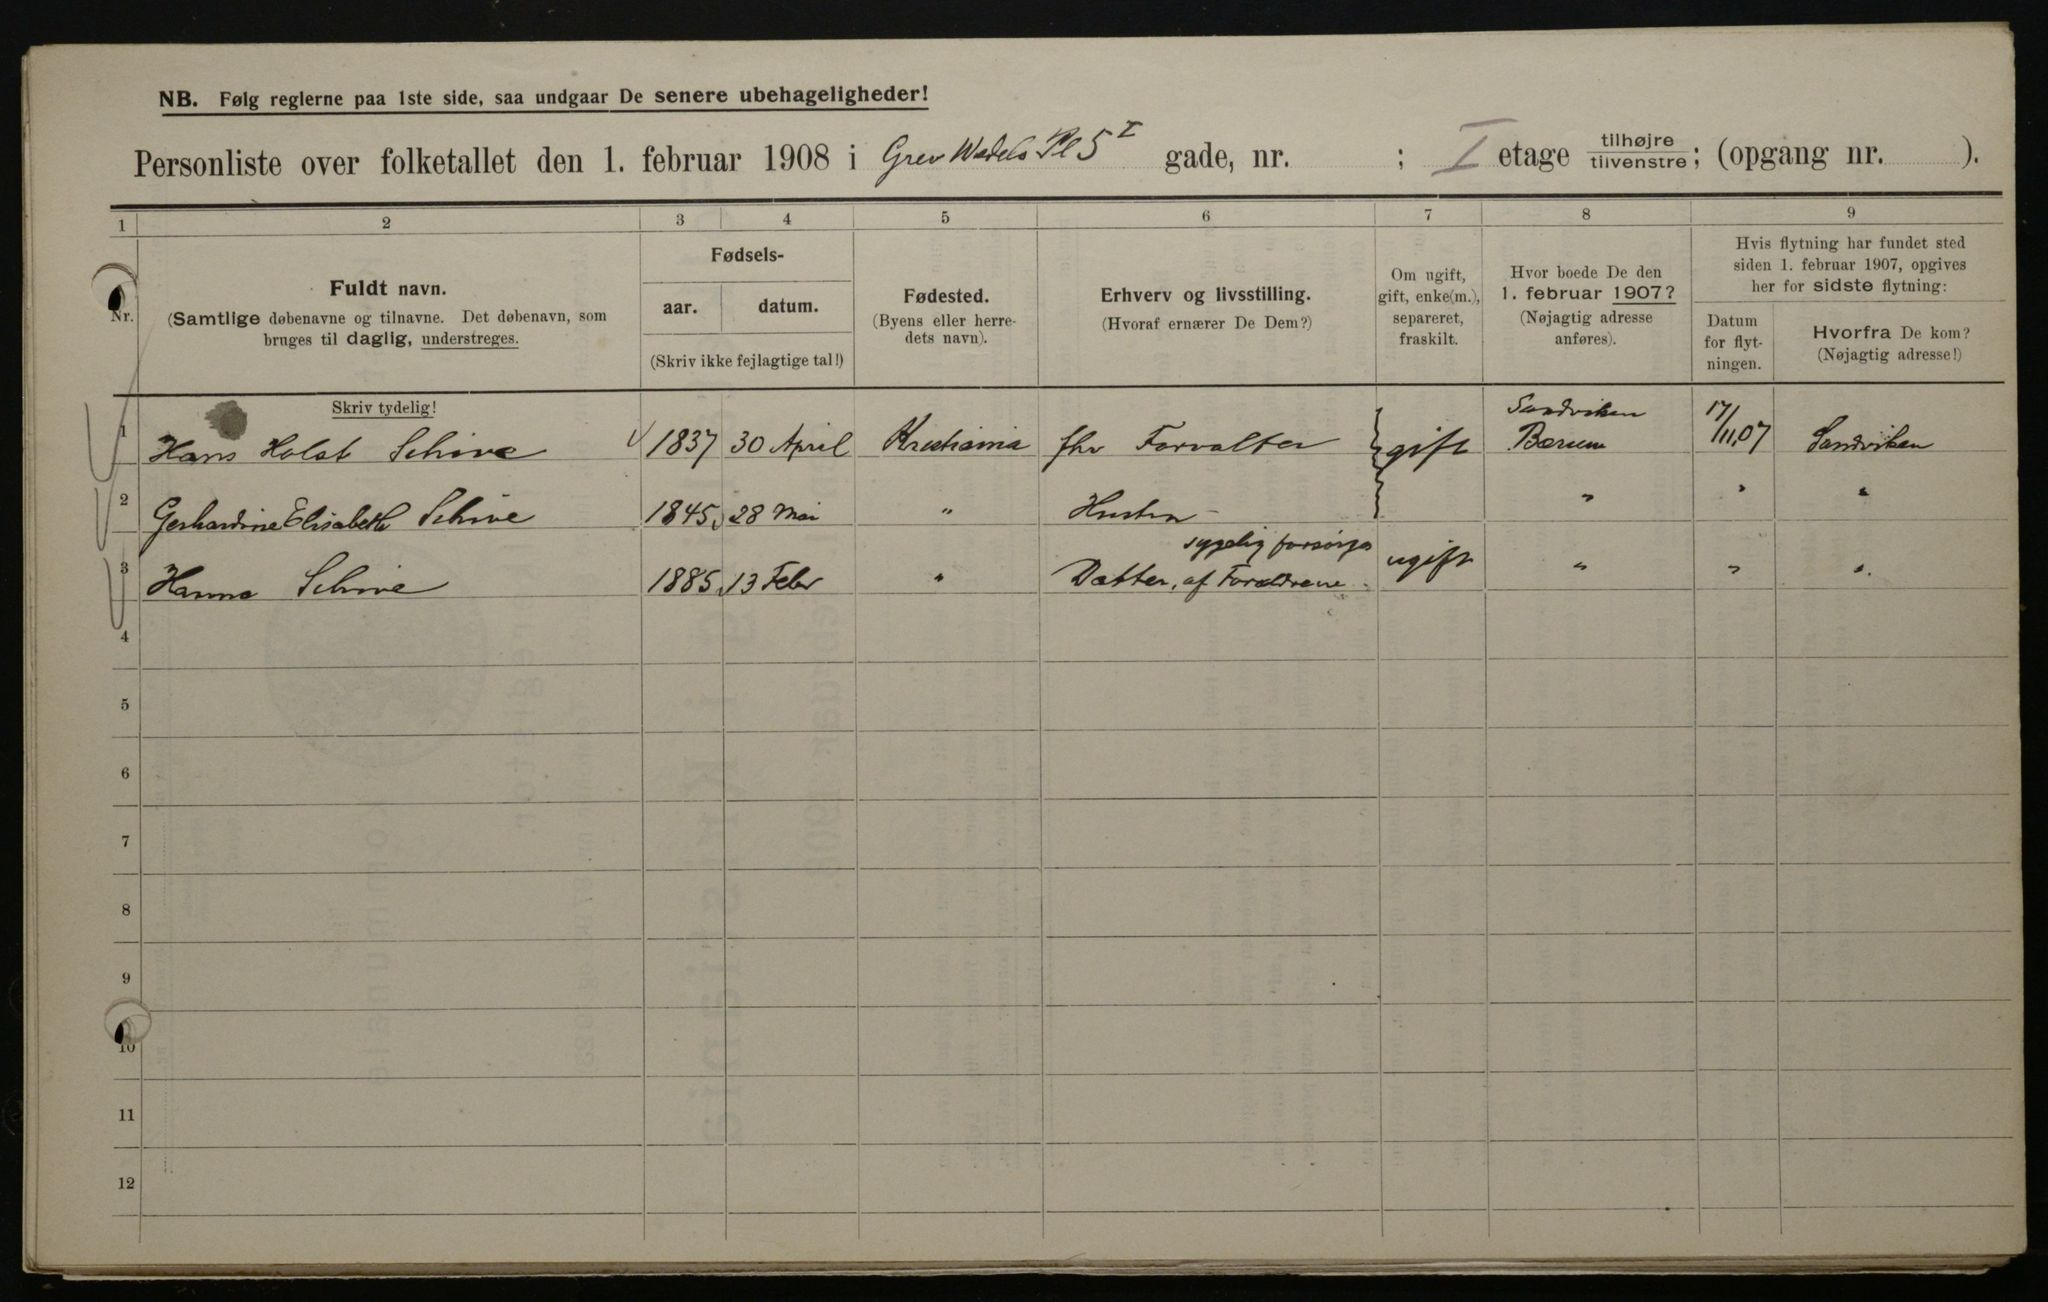 NB. Følg reglerne paa 1ste side, saa undgaar De senere ubehageligheder!
Personliste over folketallet den 1. februar 1908 i Grev Wedels Pl 5 I gade, nr. ; I etage tilhøjre tilvenstre; (opgang nr. ).
1 2 3 4 5 6 7 8 9
Nr.
Fuldt navn.
(Samtlige døbenavne og tilnavne. Det døbenavn, som
bruges til daglig, understreges.
Skriv tydelig!
Fødsels-
aar. datum.
(Skriv ikke fejlagtige tal!)
Fødested.
(Byens eller herre-
dets navn).
Erhverv og livsstilling.
(Hvoraf ernærer De Dem?)
Om ugift,
gift, enke(m.),
separeret,
fraskilt.
Hvor boede De den
1. februar 1907?
(Nøjagtig adresse
anføres).
Hvis flytning har fundet sted
siden 1. februar 1907, opgives
her for sidste flytning:
Datum
for flyt-
ningen.
Hvorfra De kom?
(Nøjagtig adresse!)
1 Hans Holst Schive 1837 30 April Kristiania fhv Forvalter gift Sandviken Bærum 17/11.07 Sandviken
2 Gerhardine Elisabeth Schive 1845 28 Mai " Hustru " " "
3 Hanna Schive 1885 13 Febr " Datter, sygelig forsørges af Forældrene ugift " " "
4
5
6
7
8
9
10
11
12